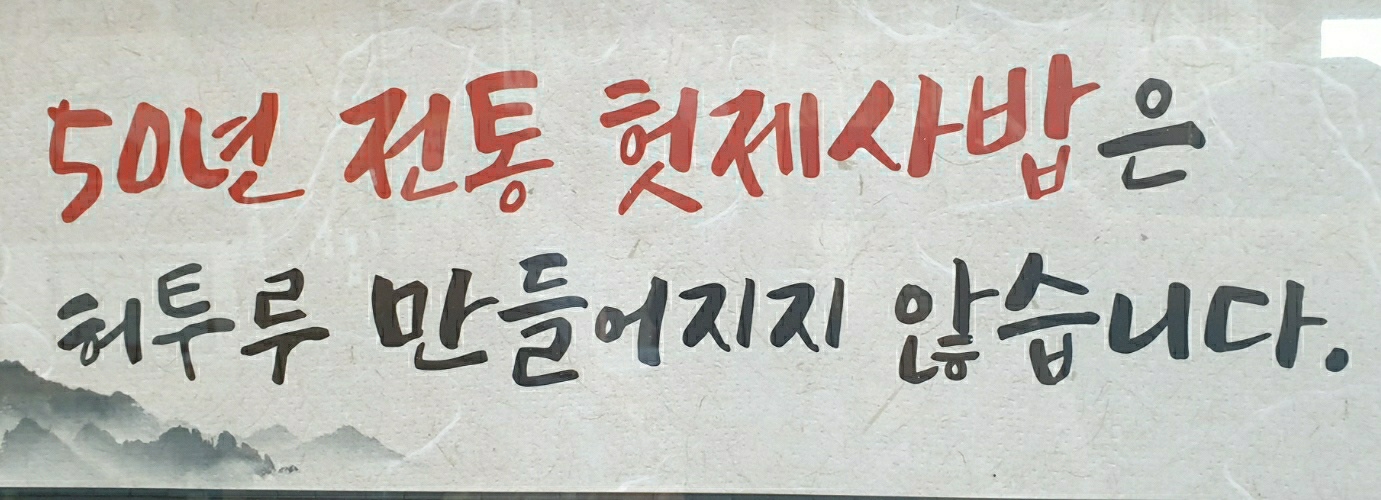 50년 전통 헛제사밥은
허투루 만들어지지 않습니다.